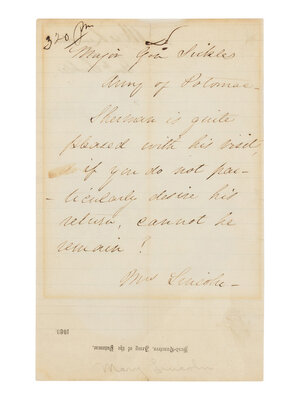 3 20 Pm
Major Gen Sickles
Army of Potomac -
Sherman is quite
pleased with his visit,
if you do not par-
- ticularly desire his
return, cannot he
remain?
Mrs Lincoln -
Head-Quarters, Army of the Potomac,
186
Mary Lincoln